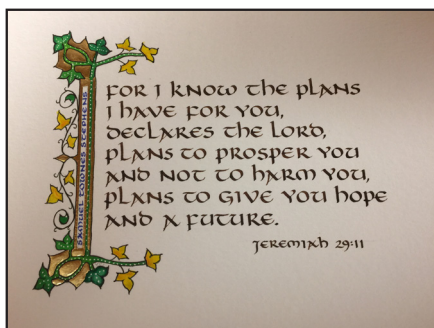 For I know the plans
I have for you,
declares the Lord,
plans to prosper you
and not to harm you,
plans to give you hope
and a future.
Jeremiah 29:11
SAMUEL STEPHENS